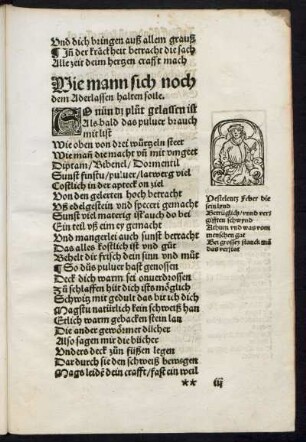 Vnd dich bringen auß allem grauß
¶ Jn der kräckheit betracht die sach
Alle zeit deim hertzen crafft mach
Wie mann sich noch
dem Aderlassen halten solle.
SO nün dz plůt gelassen ist
Als bald das puluer brauch
mit list
Wie oben von drei würtzeln steet
Wie mañ die macht vñ mit vmgeet
Diptam/ Bibenel/ Dormentil
Sunst sunst/ puluer/ latwerg viel
Costlich in der apteck on ziel
Von den gelerten hoch betracht
Vß edelgestein vnd speceri gemacht
Sunst viel materig ist auch do bei
Ein teil vß eim ey gemacht
Vnd mangerlei auch sunst betracht
Das alles kostlich ist vnd gůt
Behelt dir frisch dein sinn vnd můt
¶ So düs puluer hast genossen
Deck dich warm sei onuerdrossen
Zů schlaffen hüt dich ists möglich
Schwitz mit gedult das bit ich dich
Magstu natürlich kein schweiß han
Erlich warm gebacken stein lan
Die ander gewönner bücher
Also sagen mir die bücher
Vnders deck zůn füßen legen
Dar durch sie den schweiß bewegen
Mags leidē dein crafft/ fast ein weil
** iij
Pestelentz Feber die
sen
Betrüglich/ vnd ver
gifften schwynd
Athum vnd was vom
menschen gat
Bei grosser